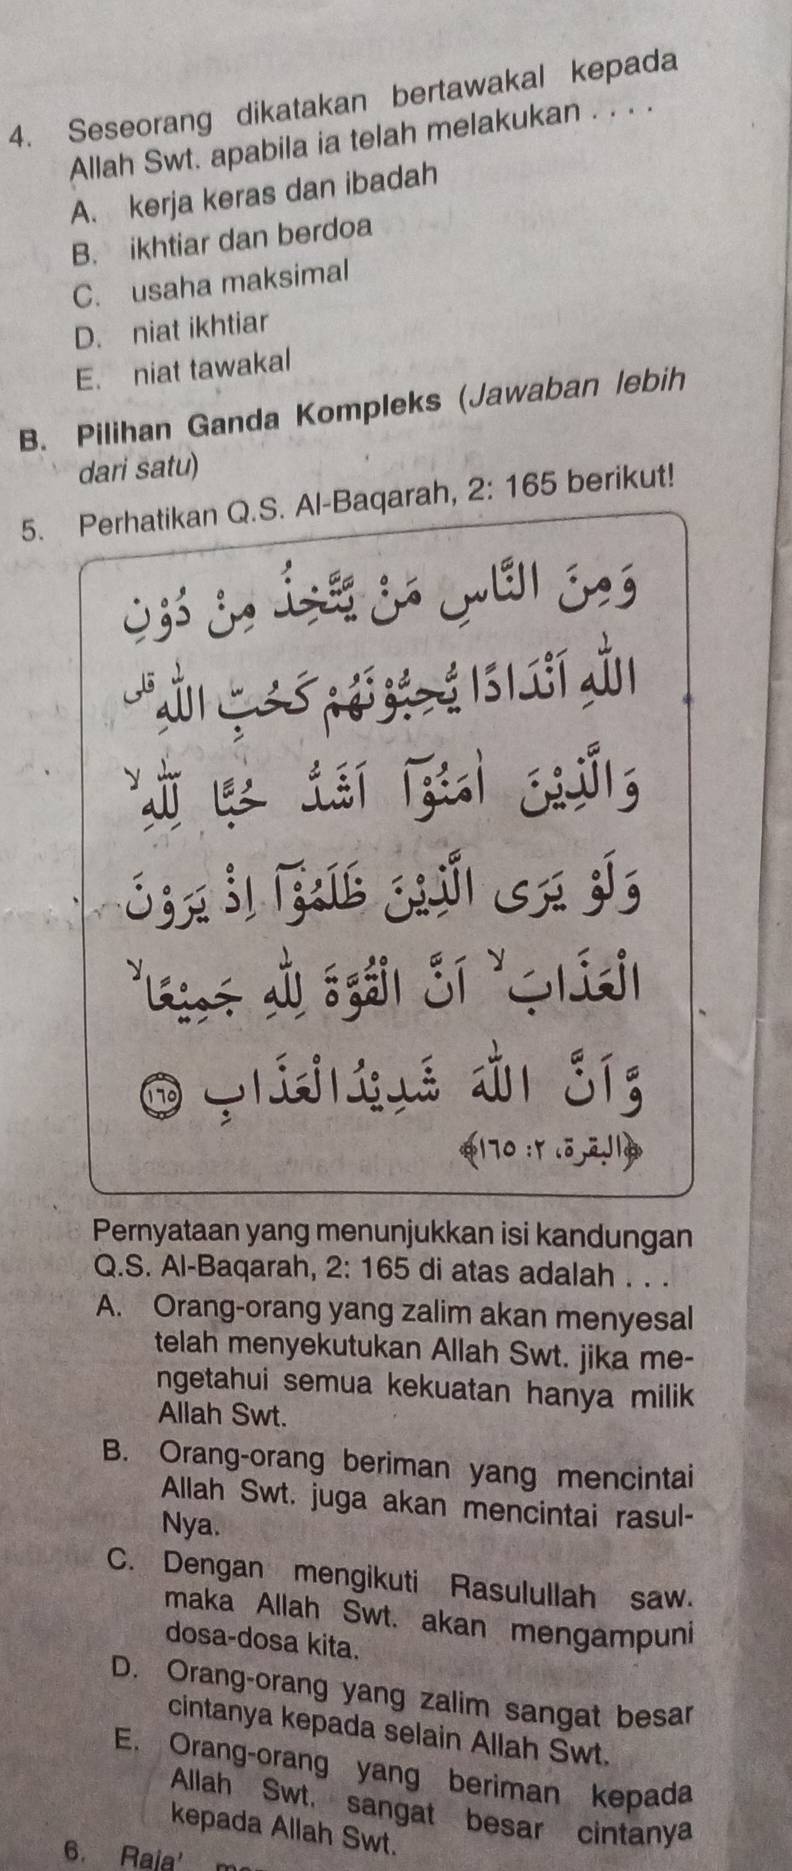 4. Seseorang dikatakan bertawakal kepada
Allah Swt. apabila ia telah melakukan . . . .
A. kerja keras dan ibadah
B. ikhtiar dan berdoa
C. usaha maksimal
D. niat ikhtiar
E. niat tawakal
B. Pilihan Ganda Kompleks (Jawaban lebih
dari satu)
5. Perhatikan Q.S. Al-Baqarah, 2: 165 berikut!
وَمِنَ النَّاسِ مَنْ يَّتَّخِذُ مِنْ دُوْنِ
اللّٰهِ اَنْدَادًا يُّحِبُّوْنَهُمْ كَحُبِّ اللّٰهِ ۗ
وَالَّذِيْنَ اٰمَنُوْٓا اَشَدُّ حُبًّا لِّلّٰهِ ۙ
وَلَوْ يَرَى الَّذِيْنَ ظَلَمُوْٓا اِذْ يَرَوْنَ
الْعَذَابَ ۙ اَنَّ الْقُوَّةَ لِلّٰهِ جَمِيْعًا ۙ
وَّاَنَّ اللّٰهَ شَدِيْدُ الْعَذَابِ ١٦٥
﴿البقرة، ٢: ١٦٥﴾
Pernyataan yang menunjukkan isi kandungan
Q.S. Al-Baqarah, 2: 165 di atas adalah . . .
A. Orang-orang yang zalim akan menyesal
telah menyekutukan Allah Swt. jika me-
ngetahui semua kekuatan hanya milik
Allah Swt.
B. Orang-orang beriman yang mencintai
Allah Swt. juga akan mencintai rasul-
Nya.
C. Dengan mengikuti Rasulullah saw.
maka Allah Swt. akan mengampuni
dosa-dosa kita.
D. Orang-orang yang zalim sangat besar
cintanya kepada selain Allah Swt.
E. Orang-orang yang beriman kepada
Allah Swt. sangat besar cintanya
kepada Allah Swt.
6. Raja'